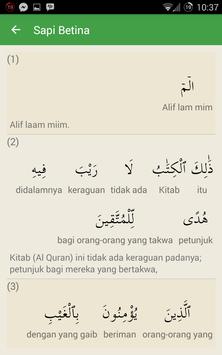 10:37
Sapi Betina
(1)
الٓمٓ
Alif lam mim
Alif laam miim.
(2)
ذَٰلِكَ الْكِتَٰبُ لَا رَيْبَ فِيهِ
didalamnya keraguan tidak ada Kitab itu
هُدًى لِّلْمُتَّقِينَ
bagi orang-orang yang takwa petunjuk
Kitab (Al Quran) ini tidak ada keraguan padanya;
petunjuk bagi mereka yang bertakwa,
(3)
الَّذِينَ يُؤْمِنُونَ بِالْغَيْبِ
dengan yang gaib beriman orang-orang yang